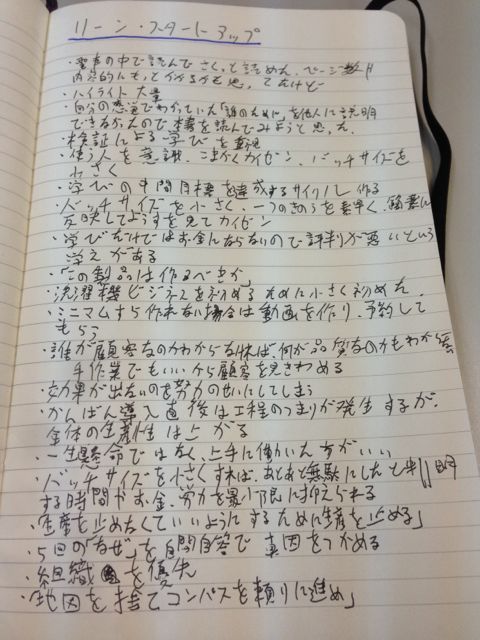 リーン・スタートアップ
・電車の中で読んで さくっと読めた。ページ数川
内容的にもっとかかるかと思ってたけど
・ハイライト 大量
・自分の感覚でわかっていた「誰のために」を他人に説明
できなかったので本書を読んでみようと思った
・検証による学びを重視
・使う人を意識、こまかくカイゼン、バッチサイズを
小さく
・学びの中間目標を達成するサイクル作る
・バッチサイズを小さく、一つのきのうを素早く、
反映してようすを見てカイゼン
・学びだけではお金にならないので評判が悪いという
考えがある
・「この製品は作るべきか」
・洗濯機ビジネスを初めるために小さく初めた
・ミニマムすら作れない場合は動画を作り、予約して
もらう
・誰が顧客なのかわからなければ、何が品質なのかもわからない
・手作業でもいいから顧客を見きわめる
・効果が出ないのを努力のせいにしてしまう
・かんばん導入直後は工程のつまりが発生するが、
全体の生産性は上がる
・一生懸命ではなく、上手に働いた方がいい
・バッチサイズを小さくすれば、あとあと無駄にしたと判明
する時間やお金、労力を最小限に抑えられる
・「生産を止めなくていいようにするために生産を止める」
・5回の「なぜ」を自問自答で 真因をつかめる
・組織を優先
・「地図を捨てコンパスを頼りに進め」